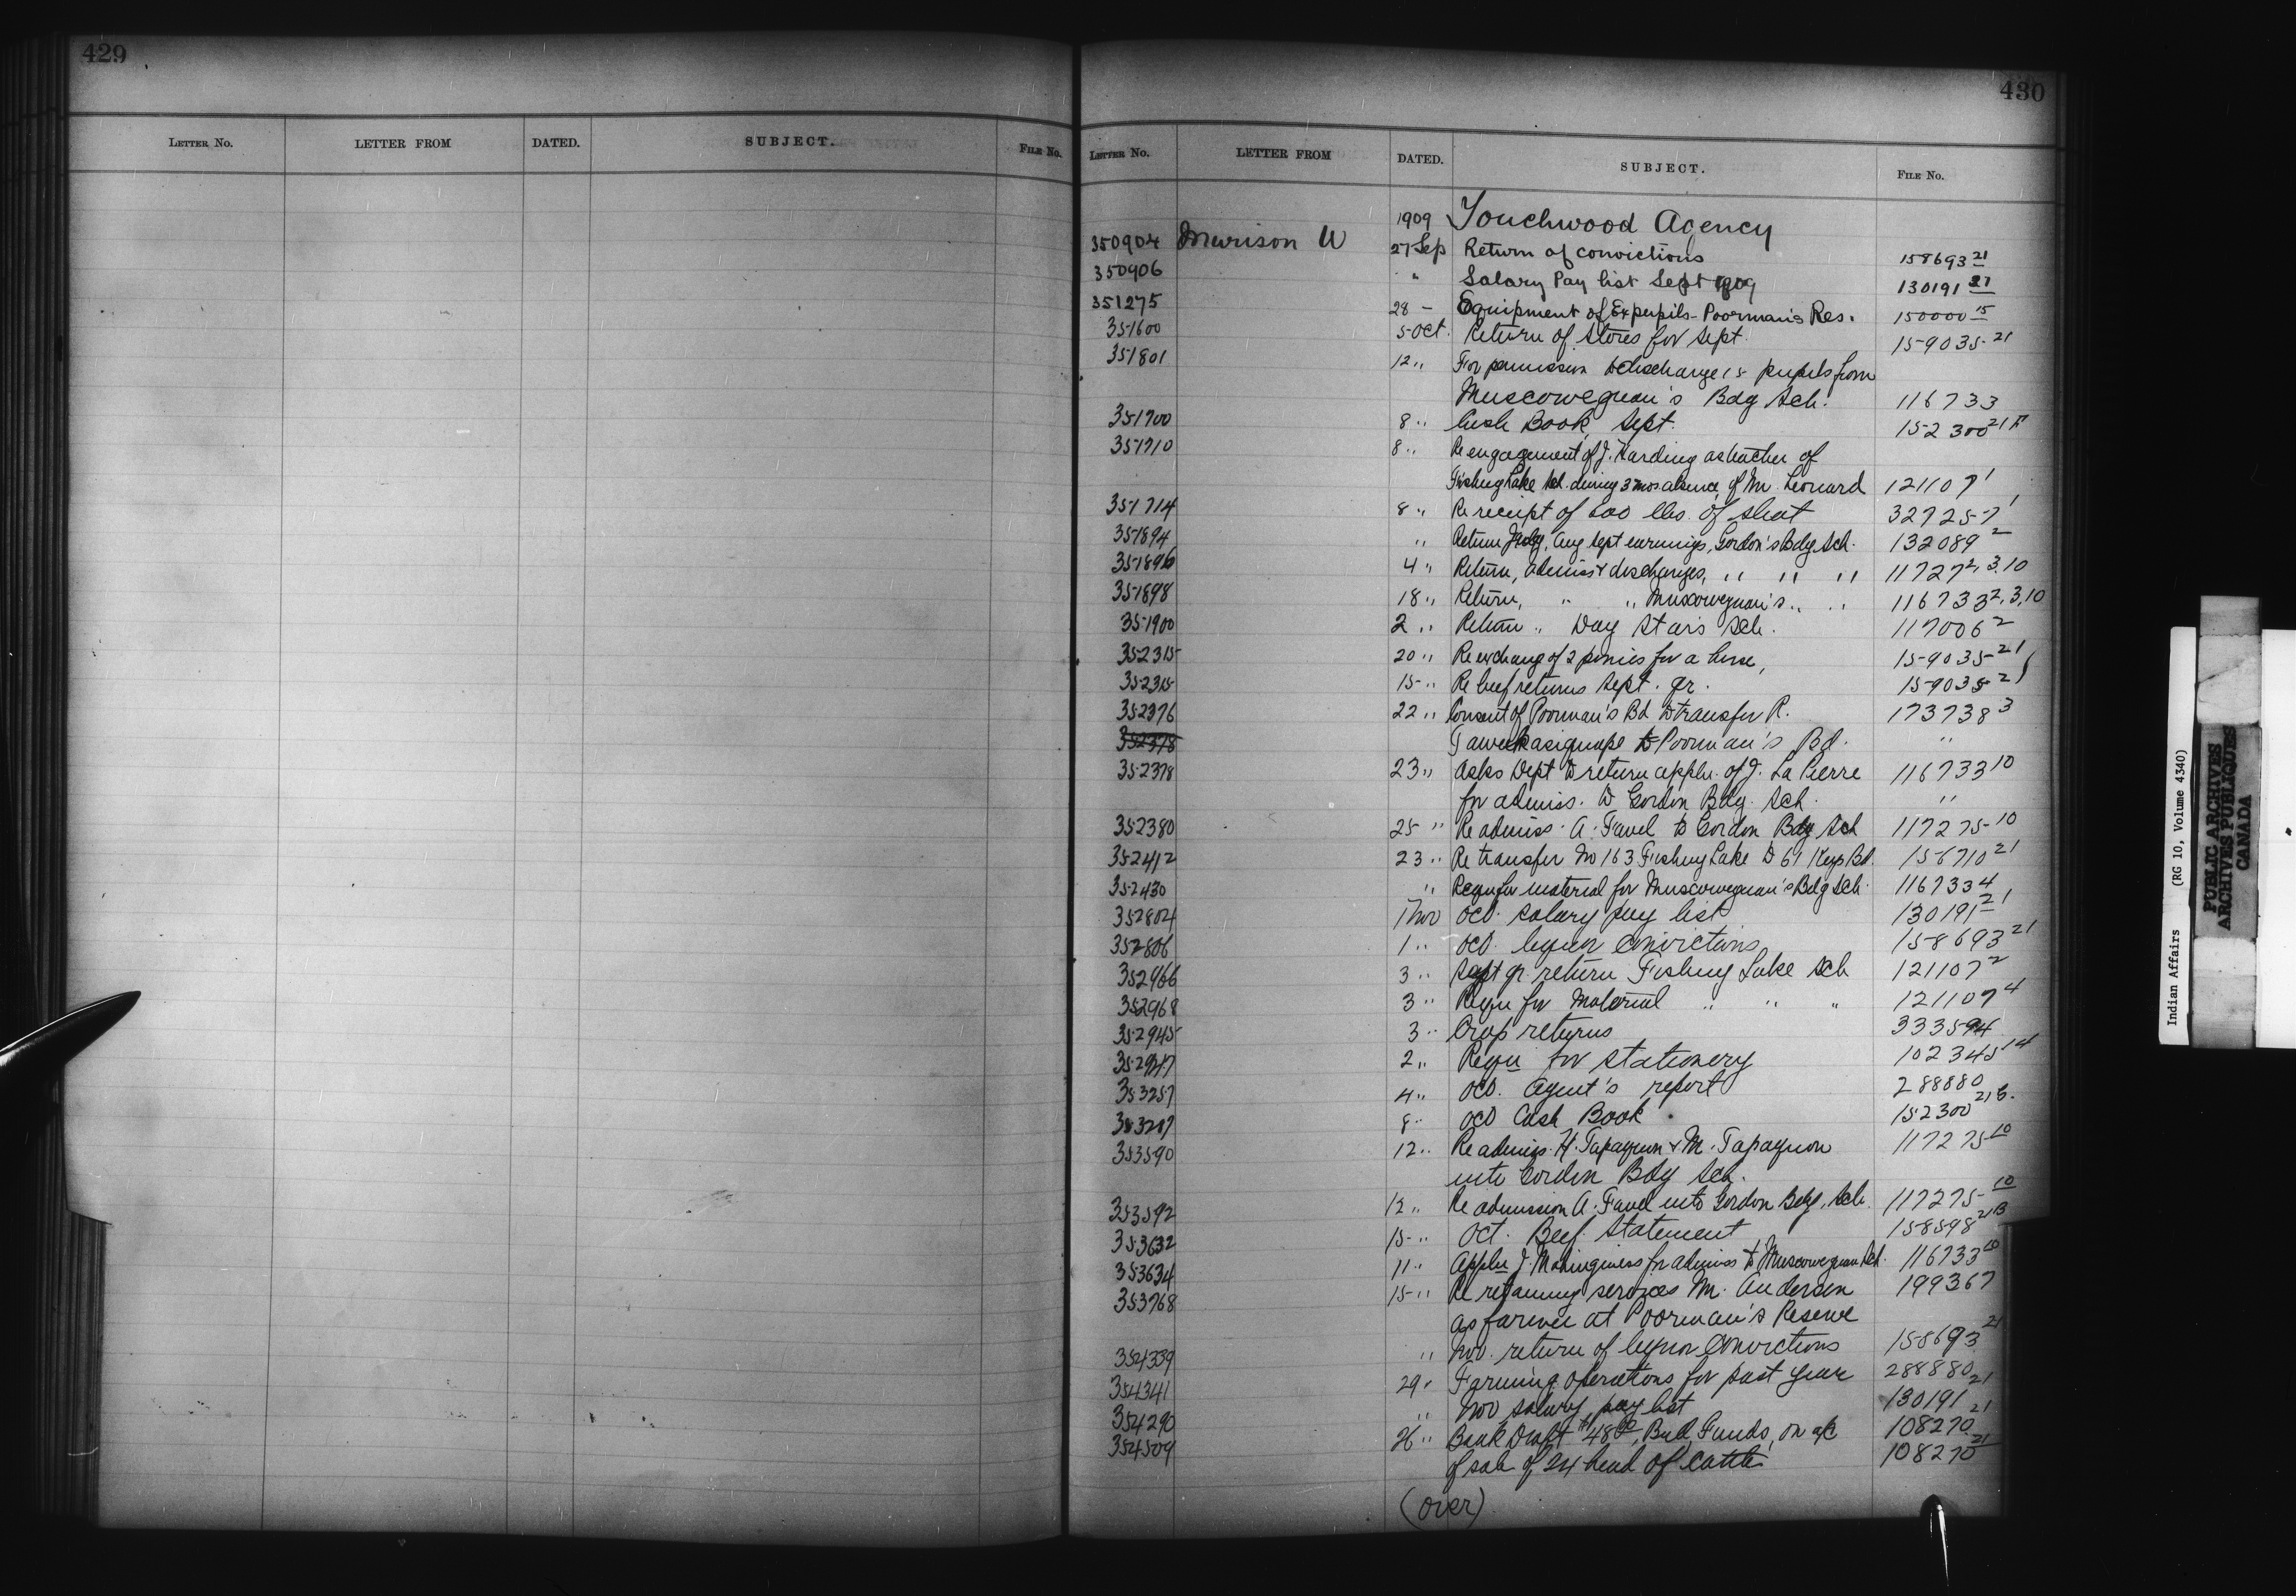 429
LETTER No. LETTER FROM DATED. SUBJECT. FILE No.
430
LETTER No. LETTER FROM DATED. SUBJECT. FILE No.
1909 Touchwood Agency
350904 Murison W 27 Sep Return of convictions 158693 21
350906 " Salary Pay list Sept 1909 130191 21
351275 28 - Equipment of Ex pupils - Poorman's Res. 150000 15
351600 5 Oct. Return of Stores for Sept. 159035 21
351801 12 " For permission to discharge 15 pupils from
Muscowequan's Bdg Sch. 116733
351700 8 " Cash Book, Sept. 152300 21
351710 8 " Re engagement of J. Harding as teacher of
Fishing Lake Sch. during 3 mos absence of Mr. Leonard 121107 1
351714 8 " Re receipt of 600 lbs. of 327257 1
351894 " Return July, Aug Sept earnings, Gordon's Bdg Sch. 132089 2
351896 4 " Return, admiss & discharges, " " " 11727 2, 3, 10
351898 18 " Return, " " Muscowequan's " " 116733 2, 3, 10
351900 2 " Return " Day Stars Sch. 117006 2
352315 20 " Re exchang of 2 ponies for a horse, 159035 21
352315 15 " Re beef returns Sept. qr. 159035 21
352376 22 " Consent of Poorman's Bd to transfer R. 173738 3
352378 to Poorman's Bd. "
352378 23 " Asks Dept to return appln. of J. La Pierre 116733 10
for admiss. to Gordon Bdg. Sch. "
352380 25 " Re admiss. A. Favel to Gordon Bdg Sch 117275 10
352412 23 " Re transfer No 163 Fishing Lake to 61 Keys Bd. 156710 21
352430 " Requn for material for Muscowequan's Bdg Sch. 116733 4
352804 1 Nov Oct. salary pay list 130191 21
352806 1 " Oct. liquor convictions 158693 21
352966 3 " Sept qr. return Fishing Lake Sch 121107 2
352968 3 " Requn for Material " " " 121107 4
352945 3 " Crop returns 333594
352947 2 " Requn for stationery 102345 14
353257 4 " Oct. Agent's report 288880
353287 8 " Oct Cash Book. 152300 21
353590 12 " Re admiss. H. Tapaquon & M. Tapaquon 117275 10
into Gordon Bdg Sch.
353592 12 " Re admission A. Favel into Gordon Bdg. Sch. 117275 10
353632 15 " Oct. Beef Statement 158598 21B
353634 11 " Appln J. for admiss to Muscowequan Sch. 116733 10
353768 15 " Re retaining services Mr. Anderson 199367
as farmer at Poorman's Reserve
354339 " Nov. return of liquor convictions 158693 21
354341 29 " Farming operations for past year 288880
354290 " Nov salary pay list 130191 21
354509 26 " Bank Draft $48 00, Funds, on a/c 108270 21
of sale of 24 head of cattle 108270 21
(over)
Indian Affairs (RG 10, Volume 4340)
PUBLIC ARCHIVES
ARCHIVES PUBLIQUES
CANADA